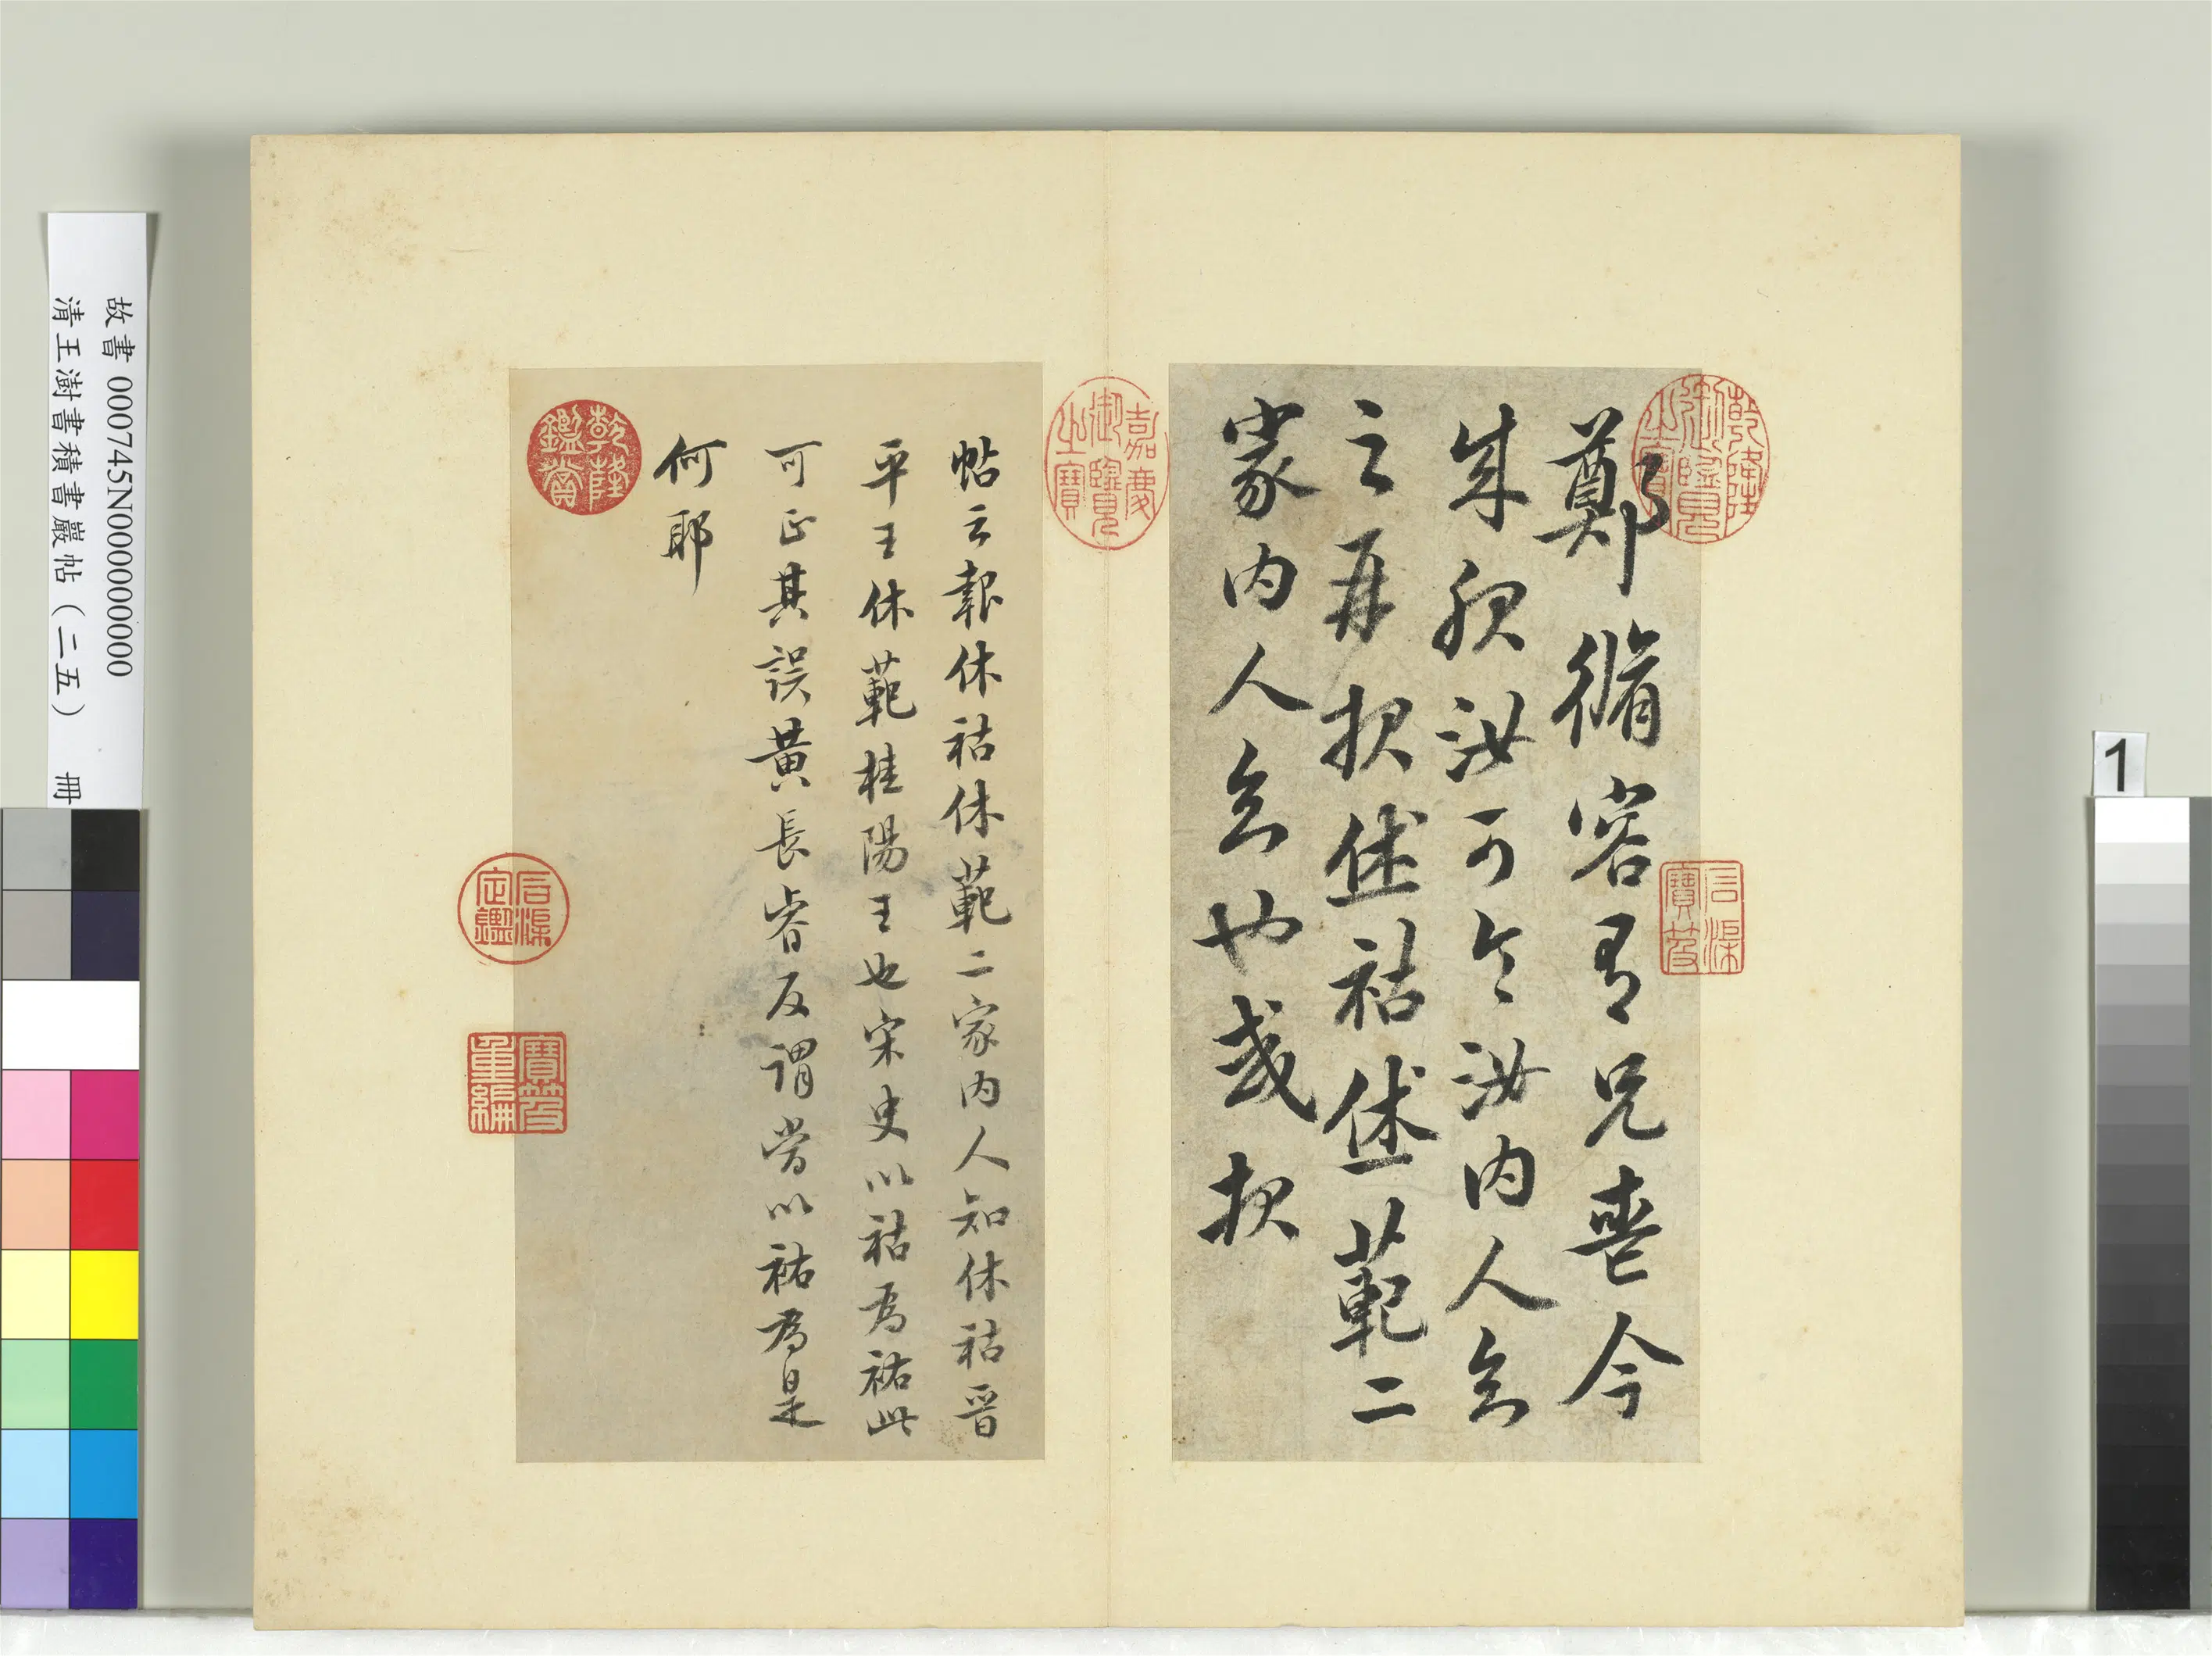 鄭脩容有兄喪今
成服汝可令汝内人知
之并報休祜休範二
家内人知也或報
帖云報休祜休範二家内人知休祜晉
平王休範桂陽王也宋史以祜為祐此
可正其誤黄長睿反謂當以祐為是
何耶
乾隆御覽之寶
石渠寶笈
嘉慶御覽之寶
乾隆鑑賞
石渠定鑑
寶笈重編
故書 000745N000000000
清王澍書積書巖帖(二五) 冊
1